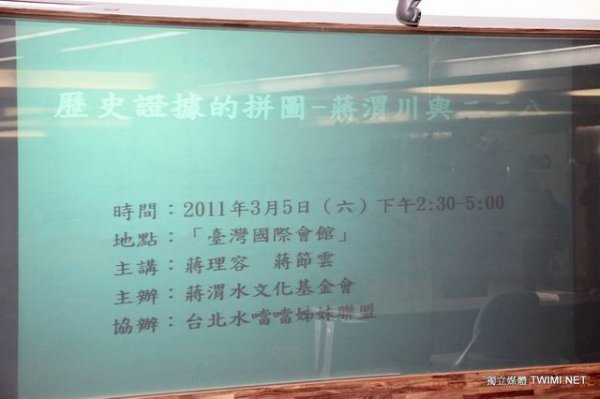 歷史證據的拼圖-蔣渭川與二二八
時間：2011年3月5日（六）下午2:30-5:00
地點：「臺灣國際會館」
主講：蔣理容 蔣節雲
主辦：蔣渭水文化基金會
協辦：台北水噹噹姊妹聯盟
獨立媒體 TWIMI.NET